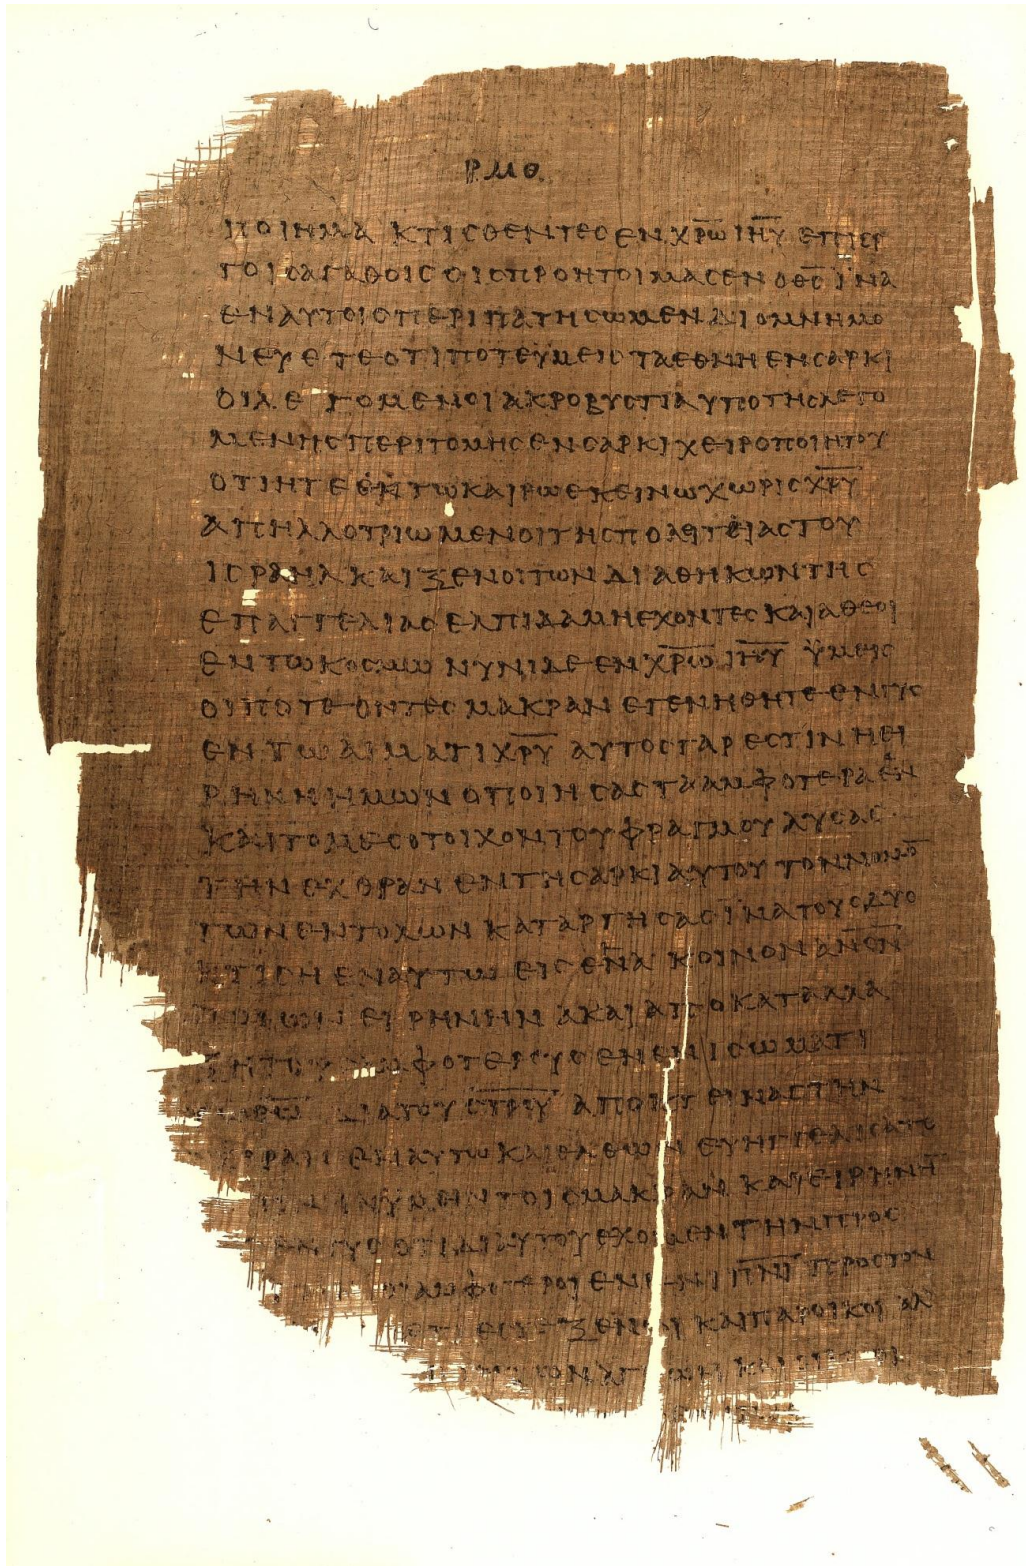 ΡΜΘ
ΠΟΙΗΜΑ ΚΤΙϹΘΕΝΤΕϹΕΝΧ̅Ρ̅Ω̅Ι̅Η̅Υ̅ ΕΠΙΕΡ
ΓΟΙϹΑΓΑΘΟΙϹΟΙϹΠΡΟΗΤΟΙΜΑϹΕΝΟΘ̅Ϲ̅ΪΝΑ
ΕΝΑΥΤΟΙϹΠΕΡΙΠΑΤΗϹΩΜΕΝΔΙΟΜΝΗΜΟ
ΝΕΥΕΤΕΟΤΙΠΟΤΕΫΜΕΙϹΤΑΕΘΝΗΕΝϹΑΡΚΙ
ΟΙΛΕΓΟΜΕΝΟΙΑΚΡΟΒΥϹΤΙΑΥΠΟΤΗϹΛΕΓΟ
ΜΕΝΗϹΠΕΡΙΤΟΜΗϹΕΝϹΑΡΚΙΧΕΙΡΟΠΟΙΗΤΟΥ
ΟΤΙΗΤΕΕΚΤΩΚΑΙΡΩΕΚΕΙΝΩΧΩΡΙϹΧ̅Ρ̅Υ̅
ΑΠΗΛΛΟΤΡΙΩΜΕΝΟΙΤΗϹΠΟΛΕΙΤΕΙΑϹΤΟΥ
ΙϹΡΑΗΛΚΑΙΞΕΝΟΙΤΩΝΔΙΑΘΗΚΩΝΤΗϹ
ΕΠΑΓΓΕΛΙΑϹΕΛΠΙΔΑΜΗΕΧΟΝΤΕϹΚΑΙΑΘΕΟΙ
ΕΝΤΩΚΟϹΜΩΝΥΝΙΔΕΕΝΧ̅Ρ̅Ω̅Ι̅Η̅Υ̅ ΫΜΕΙϹ
ΟΙΠΟΤΕΟΝΤΕϹΜΑΚΡΑΝΕΓΕΝΗΘΗΤΕΕΝΓΥϹ
ΕΝΤΩΑΙΜΑΤΙΧ̅Ρ̅Υ̅ΑΥΤΟϹΓΑΡΕϹΤΙΝΗΕΙ
ΡΗΝΗΗΜΩΝΟΠΟΙΗϹΑϹΤΑΑΜΦΟΤΕΡΑΕΝ
ΚΑΙΤΟΜΕϹΟΤΟΙΧΟΝΤΟΥΦΡΑΓΜΟΥΛΥϹΑϹ
ΤΗΝΕΧΘΡΑΝΕΝΤΗϹΑΡΚΙΑΥΤΟΥΤΟΝΝΟΜΟ̅
ΤΩΝΕΝΤΟΛΩΝΚΑΤΑΡΓΗϹΑϹΪΝΑΤΟΥϹΔΥΟ
ΚΤΙϹΗΕΝΑΥΤΩΕΙϹΕΝΑΚΟΙΝΟΝΑ̅Ν̅Ο̅Ν̅
ΕΙΡΗΝΗΝΚΑΙΑΠΟΚΑΤΑΛΛΑ
ΑΜΦΟΤΕΡΟΥϹΕΝΕΝΙϹΩΜΑΤΙ
ΔΙΑΤΟΥϹ̅Τ̅Ρ̅Υ̅ΑΠΟΚΤΕΙΝΑϹΤΗΝ
ΕΝΑΥΤΩΚΑΙΕΛΘΩΝΕΥΗΓΓΕΛΙϹΑΤΟ
ΤΟΙϹΜΑΚΡΑΝΚΑΙΕΙΡΗΝΗ̅
ΟΤΙΔΙΑΥΤΟΥΕΧΟΜΕΝΤΗΝΠΡΟϹ
ΑΜΦΟΤΕΡΟΙΕΝΕΝΙΠ̅Ν̅Ι̅ΠΡΟϹΤΟΝ
ΞΕΝΟΙΚΑΙΠΑΡΟΙΚΟΙΑΛ